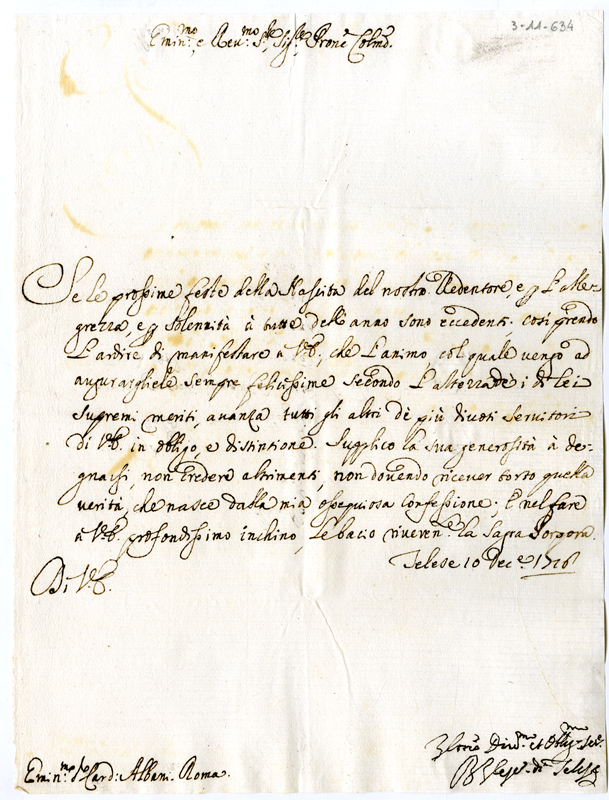 3-11-634
Emin.mo e Rev.mo Sig.re Sig.re Prone Colmo.
Se le prossime feste della Nascita del nostro Redentore, e p l'Alle-
grezza, e p Solennità à tutte dell'anno sono eccedenti. così prendo
l'ardire di manifestare a V.E., che l'animo col quale vengo ad
augurargliele sempre felicissime secondo l'altezza de i di lei
supremi meriti, avanza tutti gli altri de più divoti servitori
di V.E. in obligo, e distintione. Supplico la sua generosità à de-
gnarsi, non creder altrimenti, non dovendo ricever torto quella
verità, che nasce dalla mia ossequiosa confessione; E nel fare
a V.E. profondissimo inchino, le bacio riveren.e la Sagra Porpora.
Telese 10 Dec.e 1716
Di V.E.
Div.mo et Oblig.mo Ser.
Vesc. di Telese
Emin.mo S. Card: Albani. Roma.